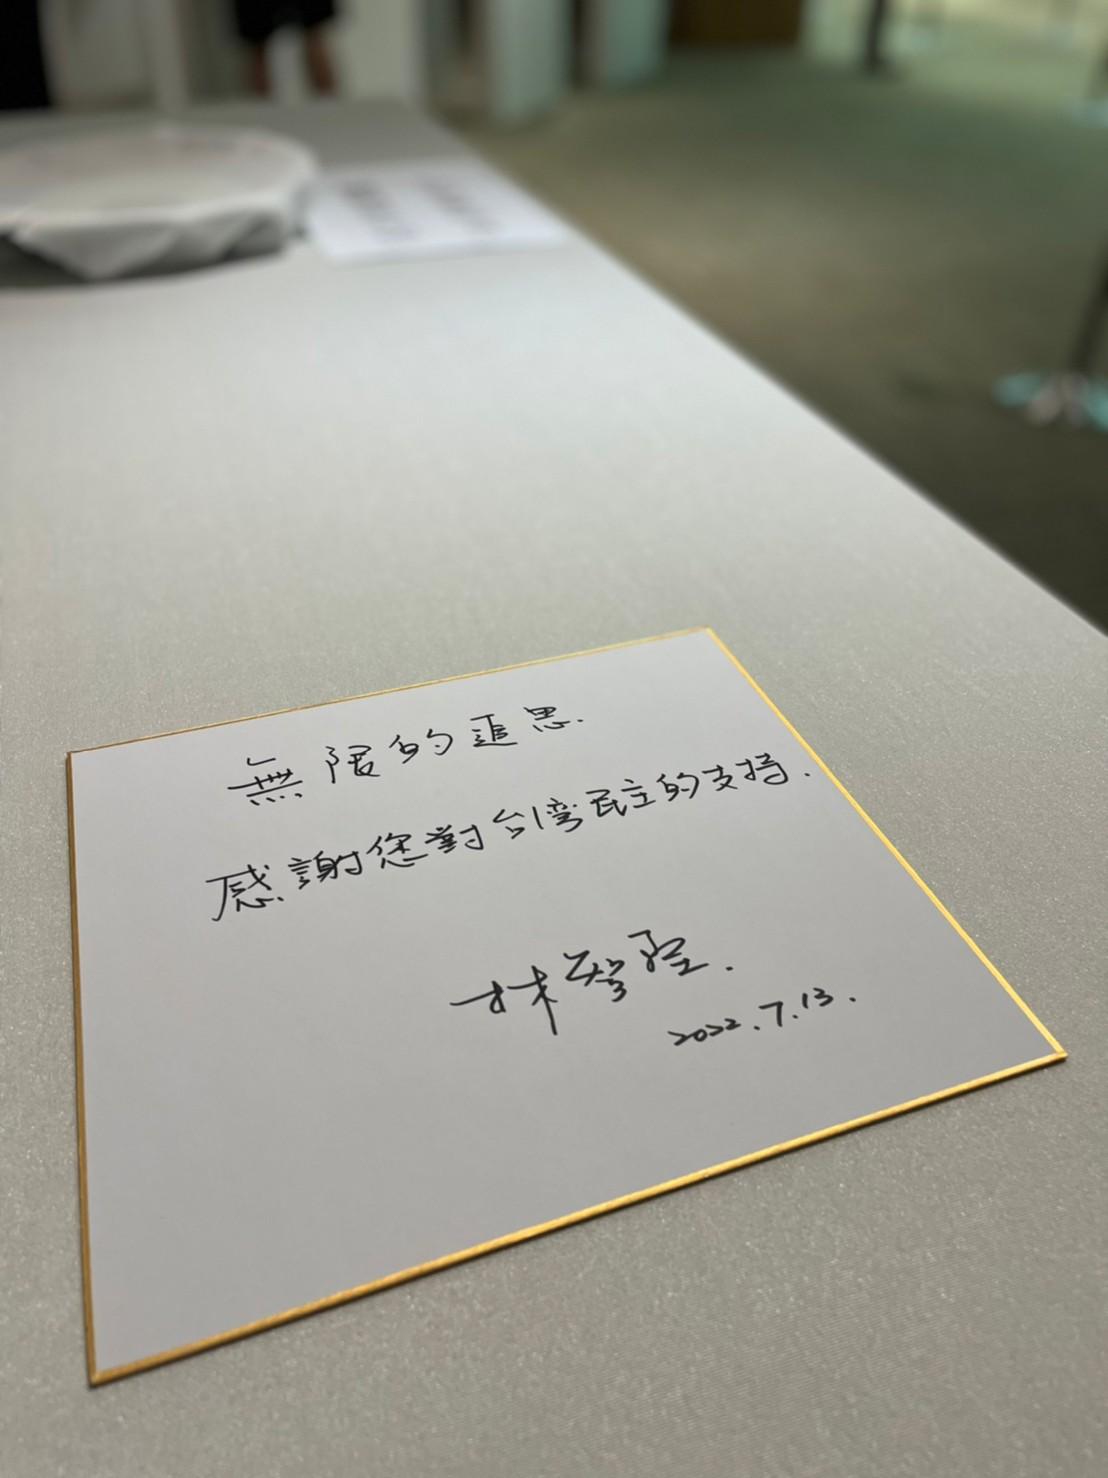 無限的追思.
感謝您對台湾民主的支持.
林智堅.
2022.7.13.